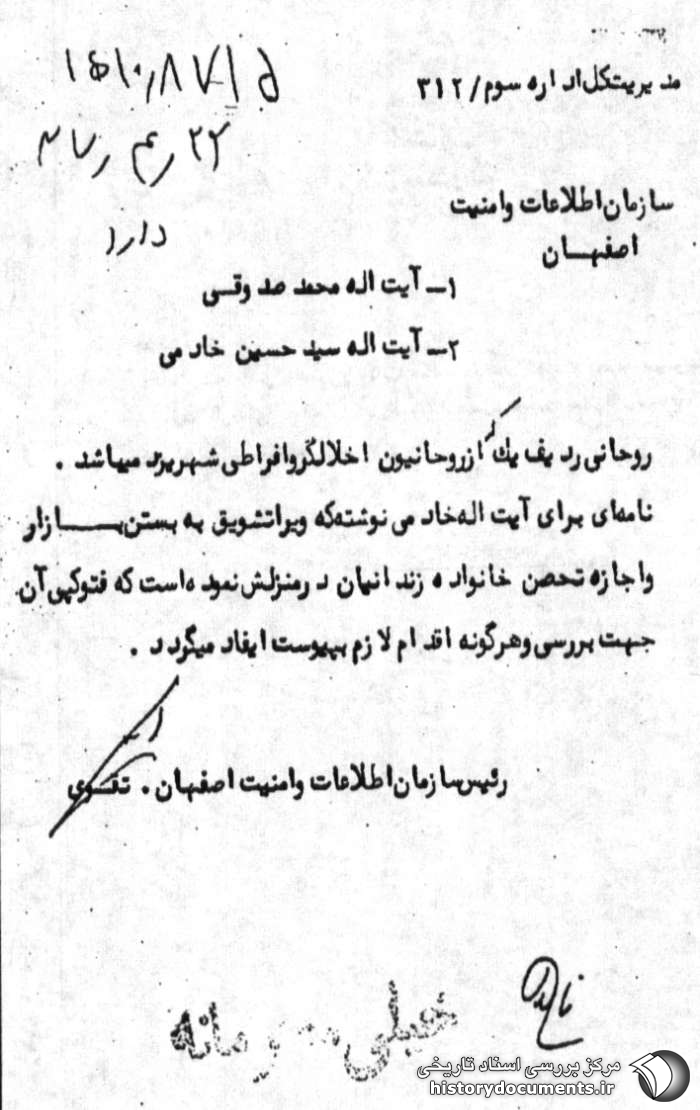 مدیریت کل اداره سوم/۳۱۲
سازمان اطلاعات وامنیت
اصفهــان
۱ــ آیت اله محمد صدوقــی
۲ــ آیت اله سید حسین خادمی
روحانی ردیف یک ازروحانیون اخلالگروافراطی شهریزد میباشد .
نامهای برای آیت اله خادمی نوشته‌که ویراتشویق به بستن بــــازار
واجازه تحصن خانواده زندانیان درمنزلش نموده‌است که فتوکپی آن
جهت بررسی وهرگونه اقدام لازم بپیوست ایفاد میگردد .
رئیس سازمان اطلاعات وامنیت اصفهان . تقــوی
خیلی محرمانه
مرکز بررسی اسناد تاریخی
historydocuments.ir